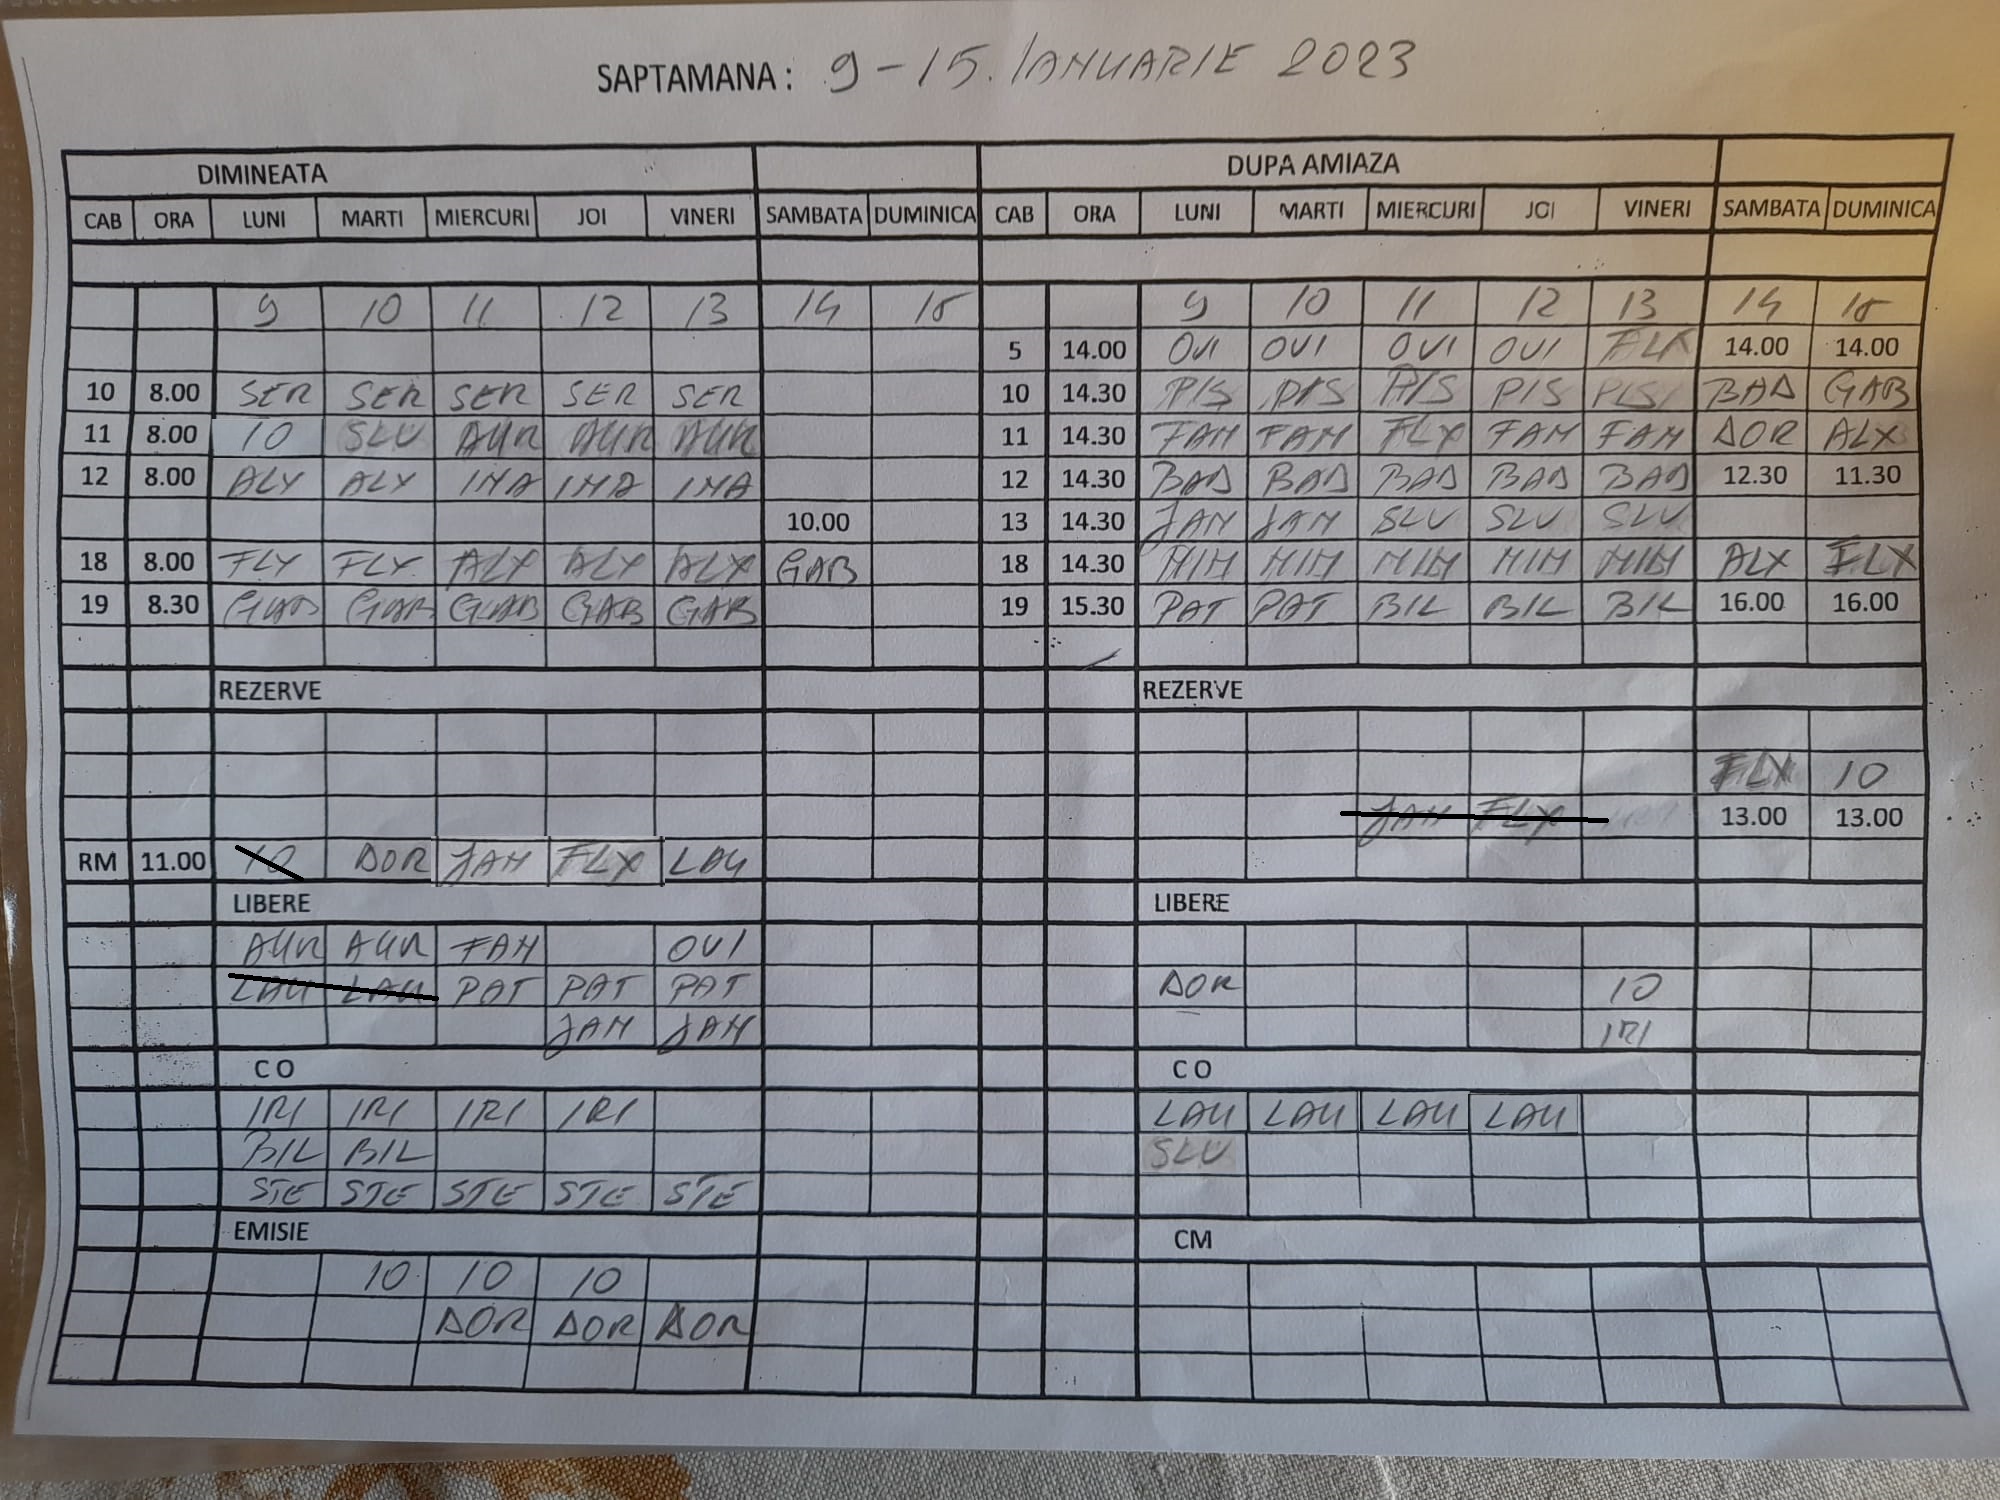 SAPTAMANA: 9-15. IANUARIE 2023
DIMINEATA DUPA AMIAZA
CAB ORA LUNI MARTI MIERCURI JOI VINERI SAMBATA DUMINICA CAB ORA LUNI MARTI MIERCURI JOI VINERI SAMBATA DUMINICA
9 10 11 12 13 14 15 9 10 11 12 13 14 15
5 14.00 OVI OVI OVI OVI FLX 14.00 14.00
10 8.00 SER SER SER SER SER 10 14.30 PIS PIS PIS PIS PIS BAD GAB
11 8.00 IO SLV AUR AUR AUR 11 14.30 FAM FAM FLX FAM FAM DOR ALX
12 8.00 ALX ALX INA INA INA 12 14.30 BAD BAD BAD BAD BAD 12.30 11.30
10.00 13 14.30 JAN JAN SLV SLV SLV
18 8.00 FLX FLX ALX ALX ALX GAB 18 14.30 MIH MIH MIH MIH MIH ALX FLX
19 8.30 GAB GAB GAB GAB GAB 19 15.30 PAT PAT BIL BIL BIL 16.00 16.00
REZERVE REZERVE
FLX IO
JAN FLX 13.00 13.00
RM 11.00 IO DOR JAN FLX LAU
LIBERE LIBERE
AUR AUR FAM OVI
LAU LAU PAT PAT PAT DOR IO
JAN JAN IRI
CO CO
IRI IRI IRI IRI LAU LAU LAU LAU
BIL BIL SLV
STE STE STE STE STE
EMISIE CM
IO IO IO
DOR DOR DOR